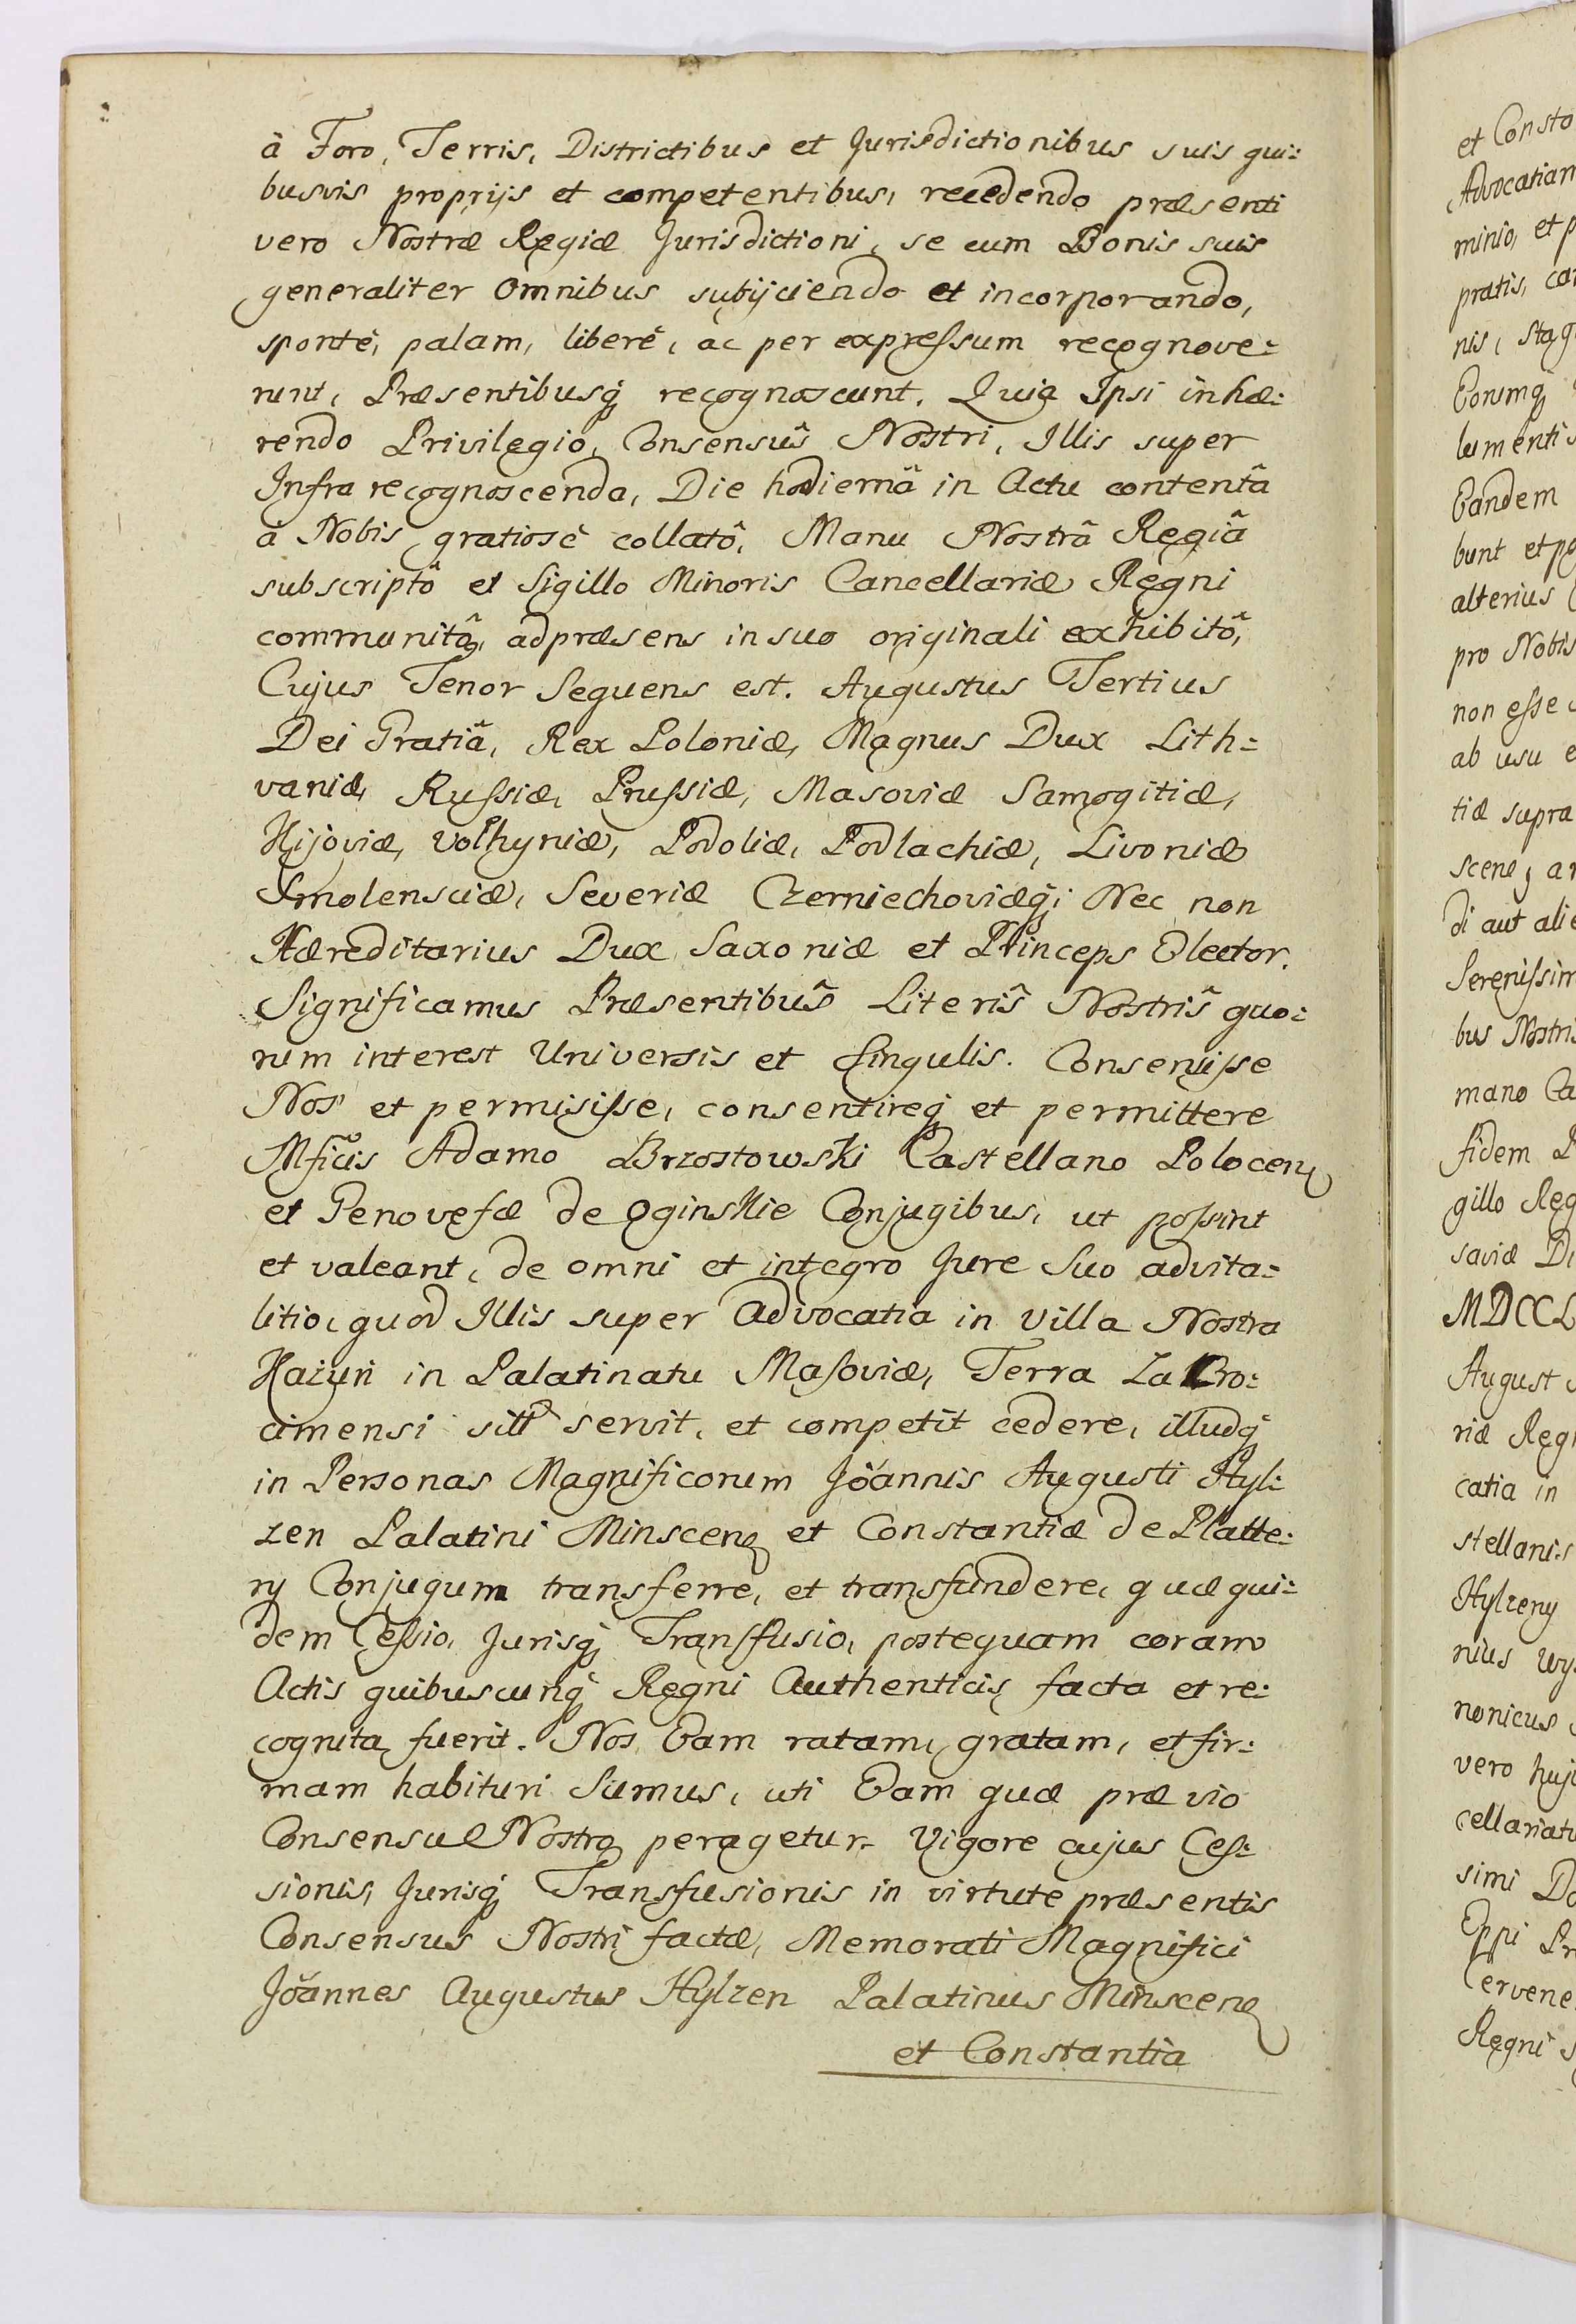 à Foro, Terris, Districtibus et Jurisdictionibus suis qui=
busvis proprijs et competentibus, recedendo præsenti
vero Nostræ Regiæ Jurisdictioni, se cum Bonis suis
generaliter Omnibus subijciendo et incorporando,
spontè, palam, liberè, ac per expreſsum recognove=
runt, Præsentibusq́ recognoscunt. Quia Ipsi inhæ=
rendo Privilegio, Consensûs Nostri, Illis super
Infra recognoscenda, Die hodiernâ in Actu contentâ
à Nobis gratiosè collatô, Manu Nostrâ Regiâ
subscriptô et Sigillo Minoris Cancellariæ Regni
communitô, adpræsens in suo originali exhibitô,
Cujus Tenor Sequens est. Augustus Tertius
Dei Gratiâ, Rex Poloniæ, Magnus Dux Lith=
vaniæ, Ruſsiæ, Pruſsiæ, Masoviæ Samogitiæ,
Kijoviæ, Volhyniæ, Podoliæ, Podlachiæ, Livoniæ
Smolensciæ, Severiæ Czerniechoviæq́; Nec non
Hæreditarius Dux Saxoniæ et Princeps Elector.
Significamus Præsentibus̃ Literis̃ Nostris̃ quo=
rum interest Universis et Singulis. Consensiſse
Nos et permisiſse, consentireq́ et permittere
Mficis Adamo Brzostowski Castellano Polocen
et Genovefæ de Oginskie Conjugibus, ut poſsint
et valeant, de omni et integro Jure Suo advita=
litio, quod Illis super Advocatia in Villa Nostra
Kazuń in Palatinatu Maſoviæ, Terra Zakro=
cimensi sitt servit, et competit cedere, illudq́
in Personas Magnificorum Joannis Augusti Hyl=
zen Palatini Minscen et Constantiæ de Platte=
ry Conjugum transferre, et transfundere, quæ qui=
dem Ceſsio, Jurisq́ Transfusio, postequam coram
Actis quibuscunq́ Regni Authenticis facta et re=
cognita fuerit. Nos Eam ratam, gratam, et fir=
mam habituri Sumus, uti Eam quæ prævio
Consensu Nostro peragetur. Vigore cujus Ceſ=
sionis, Jurisq́ Transfusionis in virtute præsentis
Consensus Nostri factæ, Memorati Magnifici
Joannes Augustus Hylzen Palatinus Minscen
et Constantia
et Consta
Advocatiam
minio, et p
pratis, ca
nis, stag
lumentis
Eandem
bunt et po
alterius
pro Nobis
non eſse
ab usu e
tiæ supra
di aut alie
Sereniſsim
bus Nostris
mano Ca
fidem P
gillo Reg
MDCCL
August
riæ Regn
catia in
stellanis
Hylzeny
nonicus
vero huju
cellariatu
simi Do
Regni